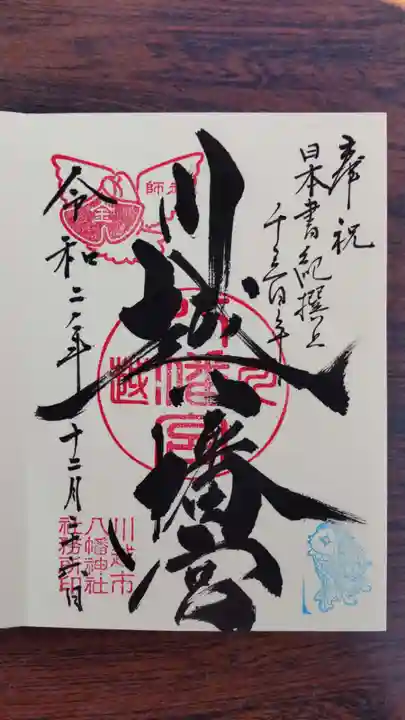 奉祝
日本書紀撰上
千三百年
川越八幡宮
令和二年十二月二十六日
師走
金
川越市
八幡神社
社務所印